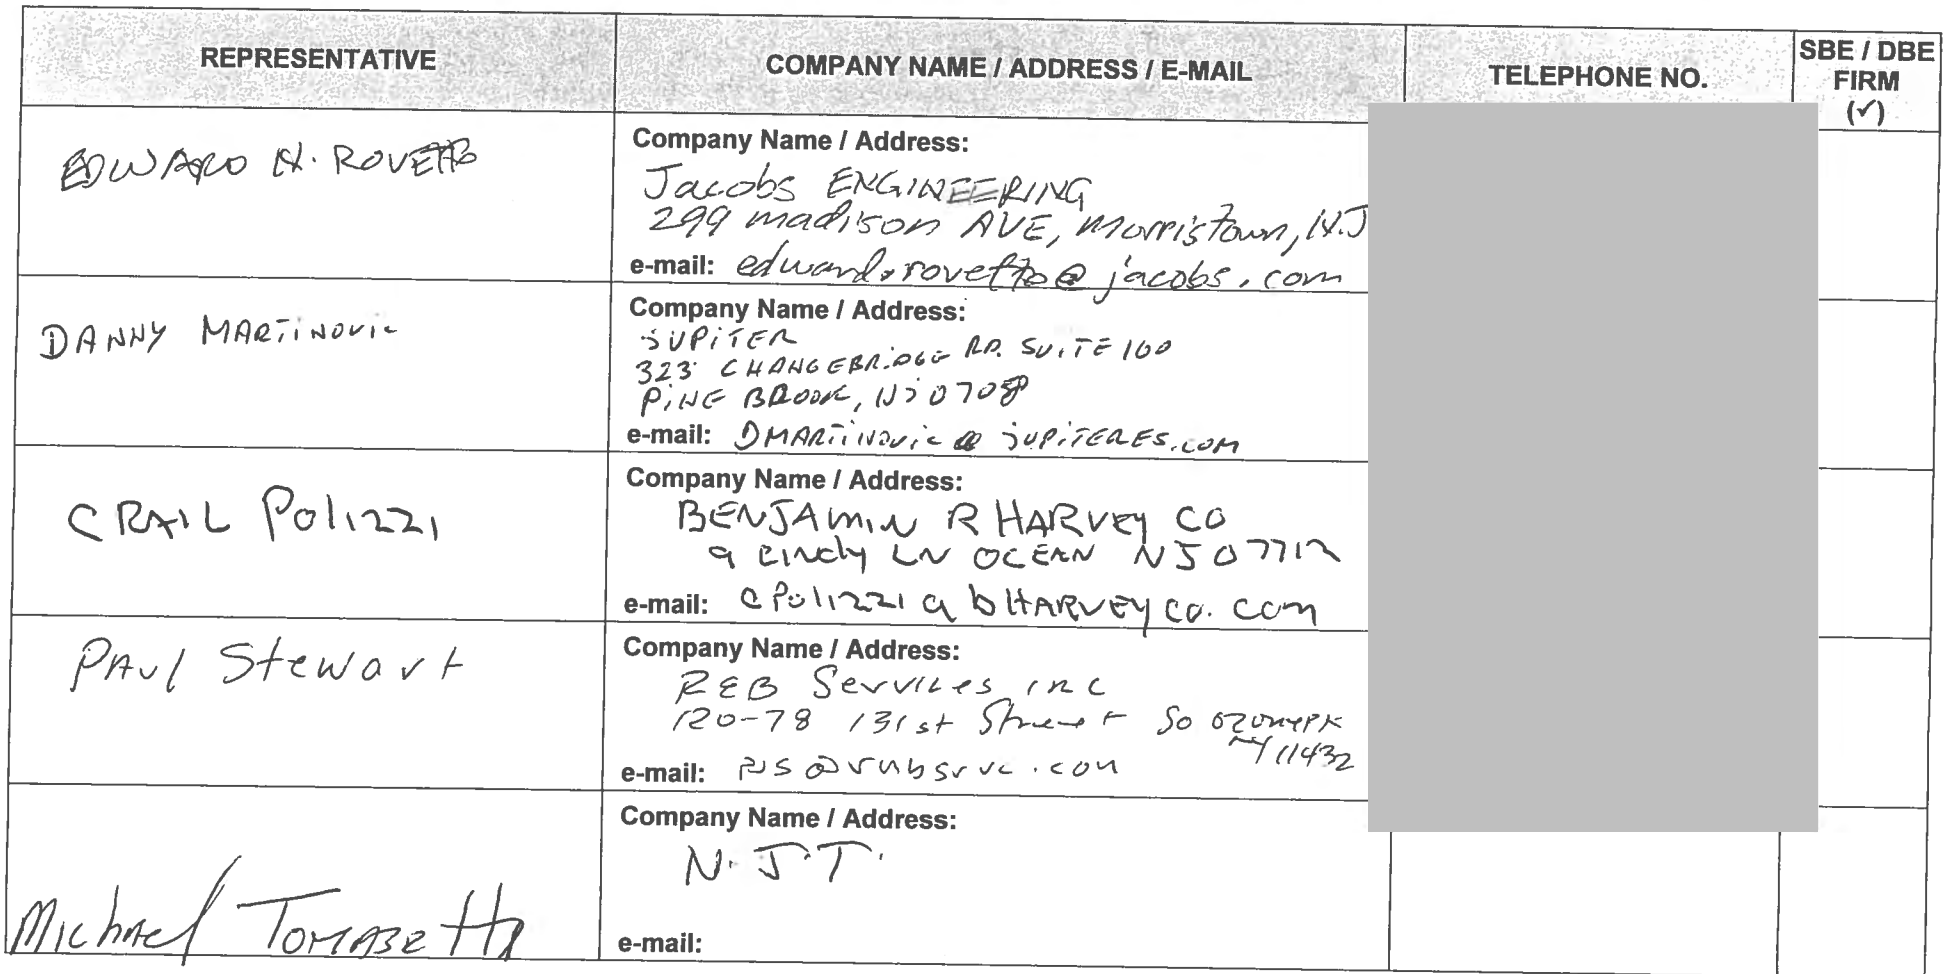 REPRESENTATIVE
COMPANY NAME / ADDRESS / E-MAIL
TELEPHONE NO.
SBE / DBE
FIRM
(✓)
EDWARD H. ROVETTO
Company Name / Address:
Jacobs ENGINEERING
299 madison AVE, Morristown, N.J
e-mail: edward.rovetto@jacobs.com
DANNY MARTINOVIC
Company Name / Address:
JUPITER
323 CHANGEBRIDGE RD. SUITE 100
PINE BROOK, NJ 07058
e-mail: DMARTINOVIC@JUPITERES.COM
CRAIL Polizzi
Company Name / Address:
BENJAMIN R HARVEY CO
9 Cindy LN OCEAN NJ 07712
e-mail: CPolizzi@bHARVEYCO.COM
PAul Stewart
Company Name / Address:
REB Services inc
120-78 131st Street So OZONEPK
NY 11432
e-mail:
Company Name / Address:
N.J.T.
Michael TOMASETTI
e-mail: